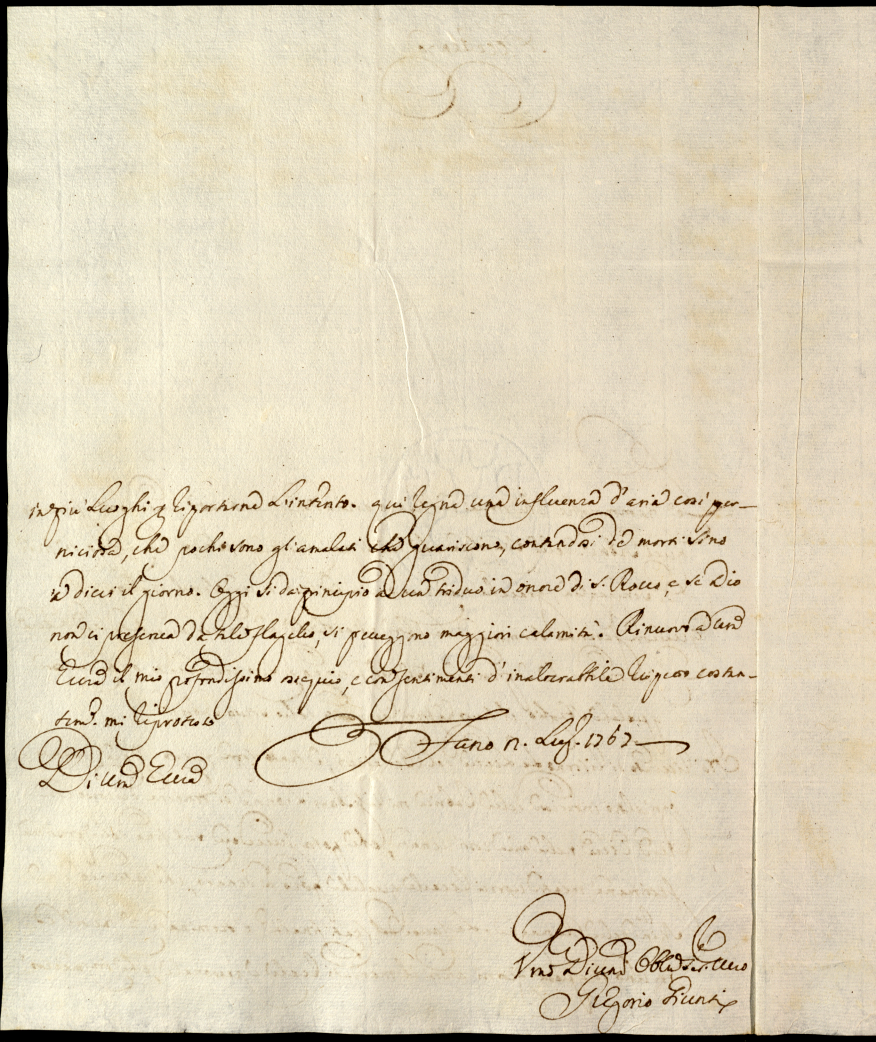 in più Luoghi p riportarne L'intento. qui regna una influenza d'aria così per-
niciosa, che pochi sono gl'amalati che guariscono, contandosi de morti sino
a dieci il giorno. Oggi si dà principio ad un triduo in onore di S. Rocco, e se Dio
non ci preserva da tale flagello, si preveggono maggiori calamità. Rinuovo a vra
Eccza il mio profondissimo ossequio, e con sentimenti d'inalterabile rispetto costan-
temte. mi riprotesto
Di vra Eccza
Fano Lug. 1767
Gregorio Giunti